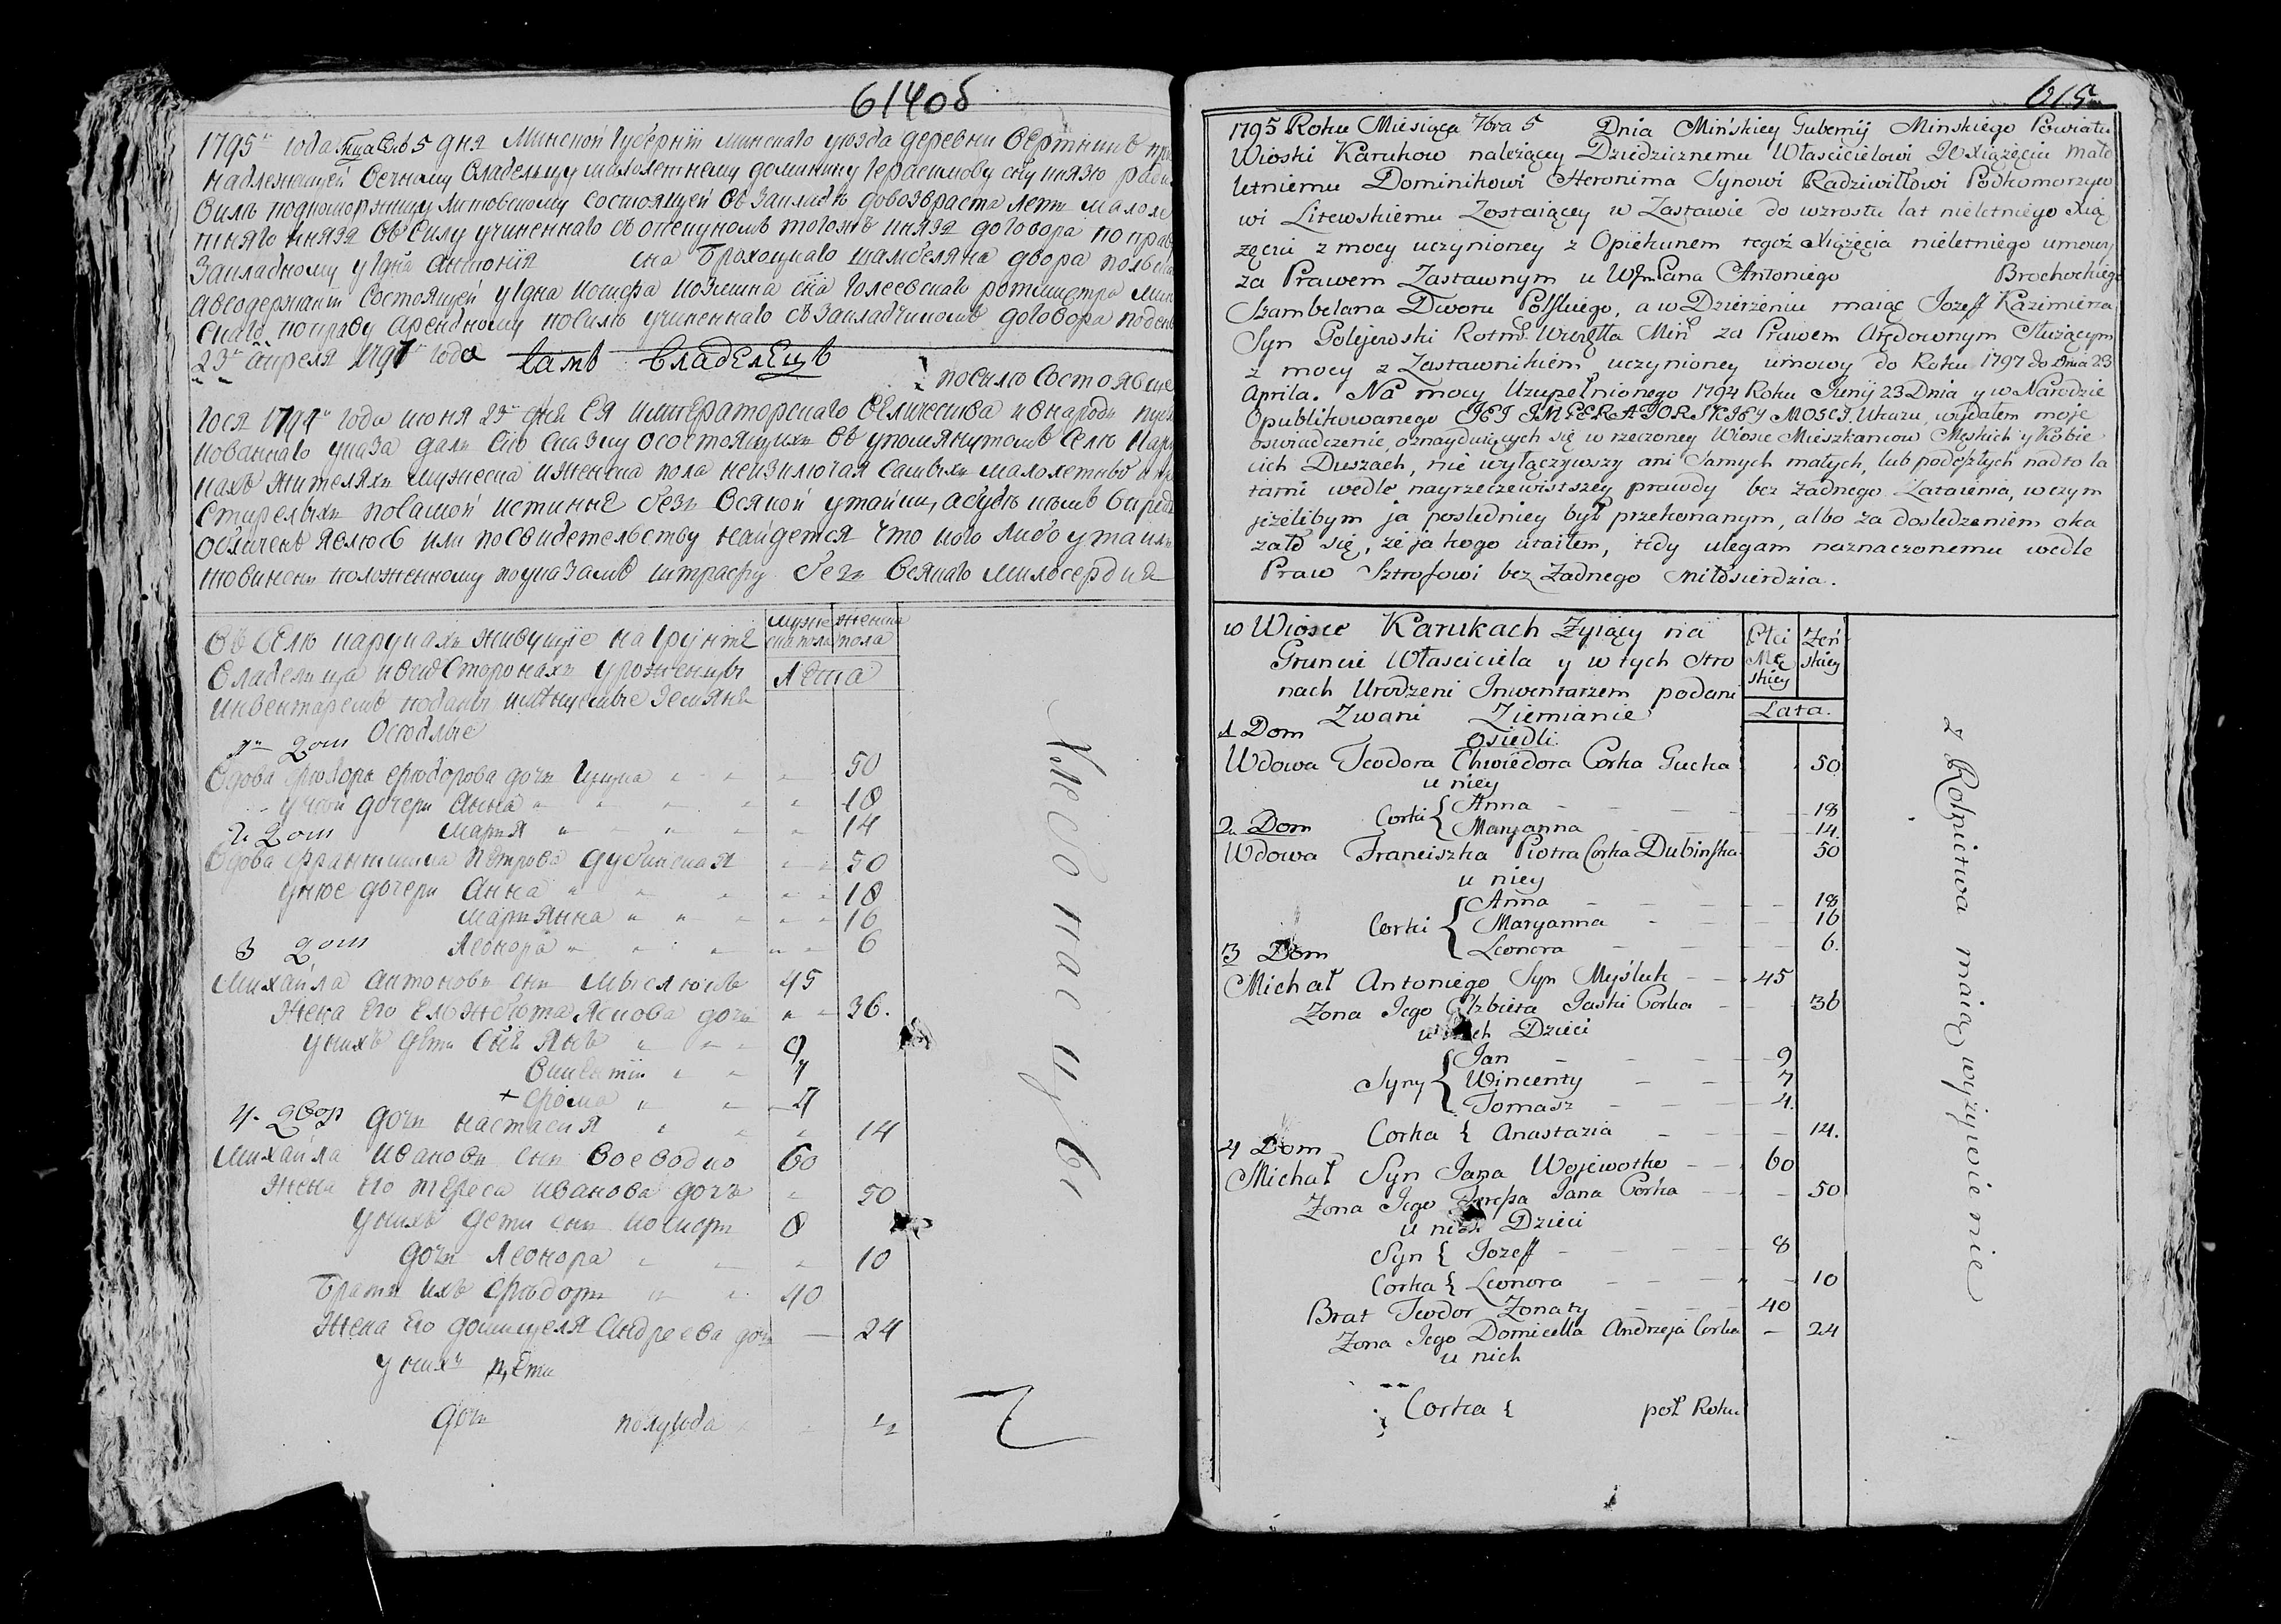 614об
1795 года 5 дня Минской Губернiи Минскаго уезда деревни
надлежащей вечному владельцу малолетнему доминику Героснмову сну князю
вилъ подкоморжицу литовскому состоящей въ закладе до возвраста летъ
князя въ силу учиненнаго съ опекуномъ тогожъ князя договора по
закладному у Iдна Антонiя сна Брохоцкаго шамбеляна двора
состоящей у Iдна Иосифа Казимира сна Голеевскаго ротмистра
по праву арендному посилъ учиненнаго съ закладчикомъ договора
23 апреля 1797 года самъ владелецъ
1794 года июня 23 дня Ея императорскаго величества
указа далъ сiю сказку о состоящихъ въ упомянутомъ селе
жителяхъ мужеска и женска пола неизключая самыхъ малолетныхъ
по самой истинне безъ всякой утайки, а буде
явлюсь или по свидетельству найдется что кого либо
повиненъ положенному по указамъ штрафу безъ всякаго милосердия
Въ селе карукахъ живущiе на Грунте
владельца и въ сторонахъ уроженцы
инвентаремъ поданы земяне
Оседлые
мужеска пола
женска пола
Лета
1 дом
Вдова Фiодора Фiодорова дочь Гуцка 50
у ней дочери Анна 18
2 дом
Мария 14
Вдова Франтишка Петрова Дубинская 50
у нее дочери Анна 18
Марианна 16
3 дом
Леонора 6
Михайла Антоновъ сынъ Мыслюкъ 45
Жена его Ельжбета Яскова дочь 36.
у нихъ дети сын Янъ 9
Викентiй 7
+ Фома 4
4. двор
дочь настасия 14
Михайла Ивановъ сынъ Воеводко 60
Жена его Тереса Иванова дочь 50
у нихъ дети сынъ Иосифъ 8
дочь Леонора 10
Братъ ихъ Фiодоръ 40
Жена его домицеля Андреева дочь 24
у нихъ дети
дочь полугода ½
Хлебопашцы
615
1795 Roku Miesiąca 7bra 5 Dnia Mińskiey Gubernij Minskiego Powiatu
Wioski Karukow należącey Dziedzicznemu Włascicielowi Xiążęciu mało
letniemu Dominikowi Heronima Synowi Radziwiłłowi Podkomorzyco
wi Litewskiemu Zostaiącey w Zastawie do wzrostu lat nieletniego Xią
żęcia z mocy uczynioney z Opiekunem tegoż Xiążęcia nieletniego umowy
za Prawem Zastawnym u Wjm Pana Antoniego Brochockiego
Szambelana Dworu Polskiego, a w Dzierżeniu maiąc Jozeff Kazimierza
Syn Golejewski Rotm. Wwdztta Miń za Prawem Arędownym Służącym
z mocy z Zastawnikiem uczynioney umowy do Roku 1797 do Dnia 23
Aprila. Na mocy Uzupełnionego 1794 Roku Junij 23 Dnia y w Narodzie
Opublikowanego JEJ IMPERATORSKIEY MOSCI. Ukazu, wydałem moje
oswiadczenie, o znayduiących się w rzeczoney Wiosce Mieszkancow Męskich y Kobie
cich Duszach, nie wyłączywszy ani Samych małych, lub podeszłych nadto la
tami wedle nayrzeczewistszey prawdy bez żadnego Zataienia, w czym
jeżelibym ja posledniey był przekonanym, albo za dosledzeniem oka
zało się, że ja kogo utaiłem, tedy ulegam naznaczonemu wedle
Praw Sztrofowi bez żadnego miłosierdzia.
w Wiosce Karukach Żyiący na
Gruncie Własciciela y w tych Stro
nach Urodzeni Inwentarzem podani
Zwani Ziemianie
Osiedli
Płci Mę skiey
Żeń skiey
Lata.
1 Dom
Wdowa Teodora Chwiedora Corka Gucka 50
u niey
Corki { Anna 18
Maryanna 14.
2 Dom
Wdowa Franciszka Piotra Corka Dubinska 50
u niey
Corki { Anna 18
Maryanna 16
Leonora 6.
3 Dom
Michał Antoniego Syn Myśluk 45
Zona Jego Elzbieta Jaski Corka 36
u nich Dzieci
Syny { Jan 9
Wincenty 7
Tomasz 4.
Corka { Anastazia 14.
4 Dom
Michał Syn Jana Wojewotko 60
Zona Jego Teressa Jana Corka 50
u nich Dzieci
Syn { Jozeff 8
Corka { Leonora 10
Brat Teodor Żonaty 40
Zona Jego Domicella Andrzeja Corka 24
u nich
Corka { poł Roku
z Rolnictwa maią wyżywienie